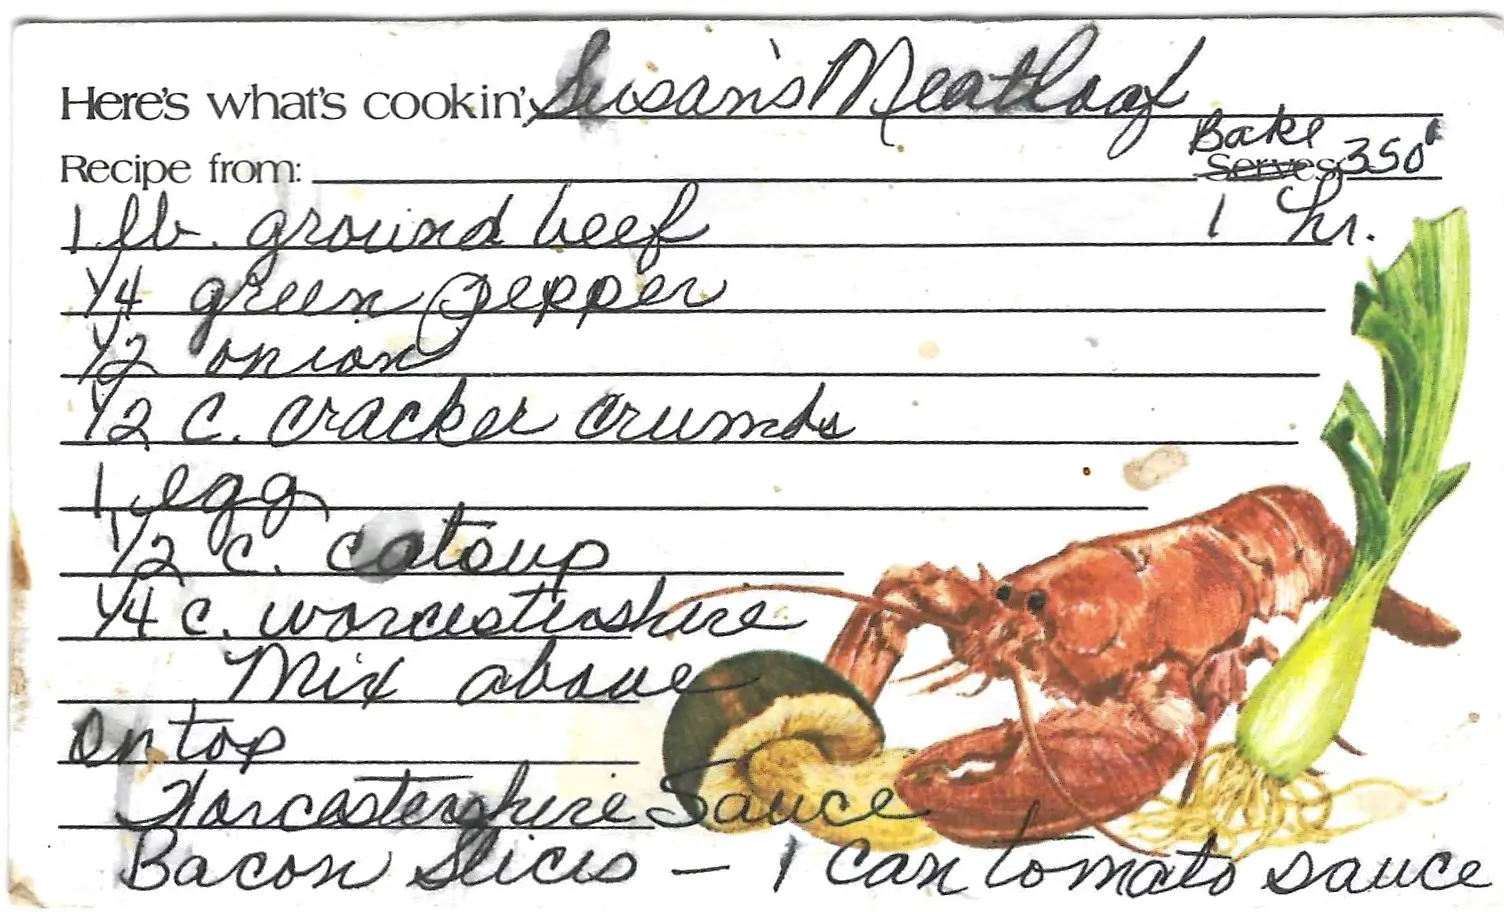 Here's what's cookin' Susan's Meatloaf
Recipe from: Serves Bake 350°
1 lb. ground beef 1 hr.
1/4 green pepper
1/2 onion
1/2 c. cracker crumbs
1 egg
1/2 c. catsup
1/4 c. worcestershire
Mix above
On top
Worcestershire Sauce
Bacon Slices — 1 can tomato sauce